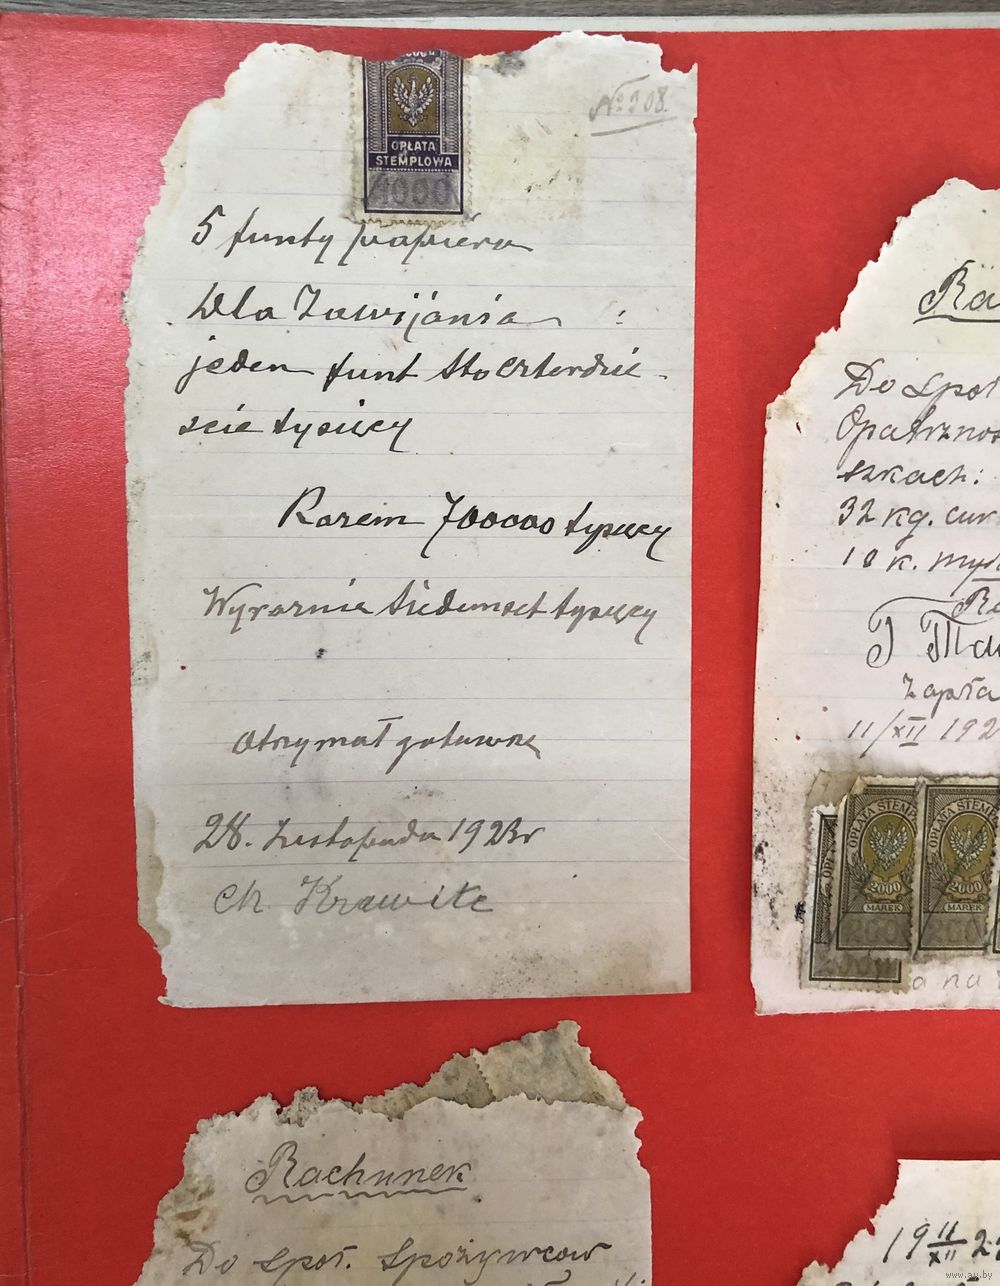 № 308.
OPŁATA
STEMPLOWA
1000
5 funty papiera
Dla Zawijánia :
jeden funt sto czterdzie-
scie tysięcy
Razem 700000 tysięcy
Wyraznie siedemset tysięcy
Otrzymał gotuwką
28. Listopada 1923r
Ch. Krawitc
Ra
Do Społ
Opatrznoś
szkach:
32 kg. cuk
10 k. mydł
Ra
Zapła
11/XII 192
OPŁATA STEMP
2000
MAREK
OPŁATA STEMP
2000
MAREK
a na
Rachunek
Do społ. Spożywców
19 11/XII 2
www.ay.by